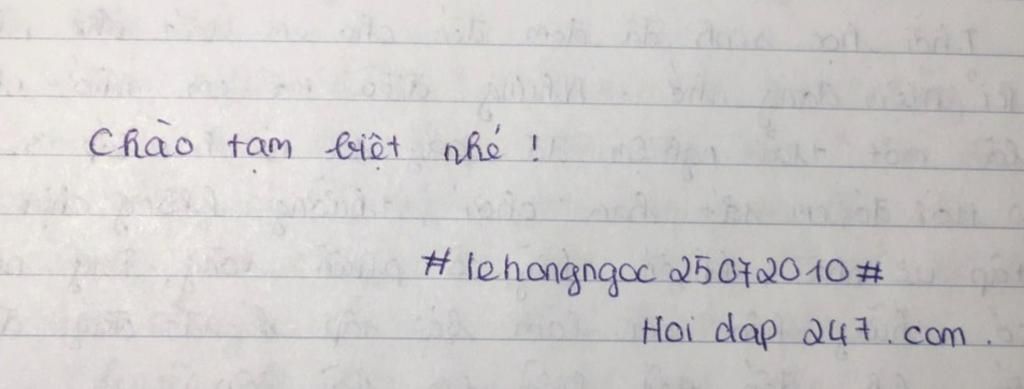 Chào tạm biệt nhé !
#lehongngoc25072010#
Hoi dap 247.com.